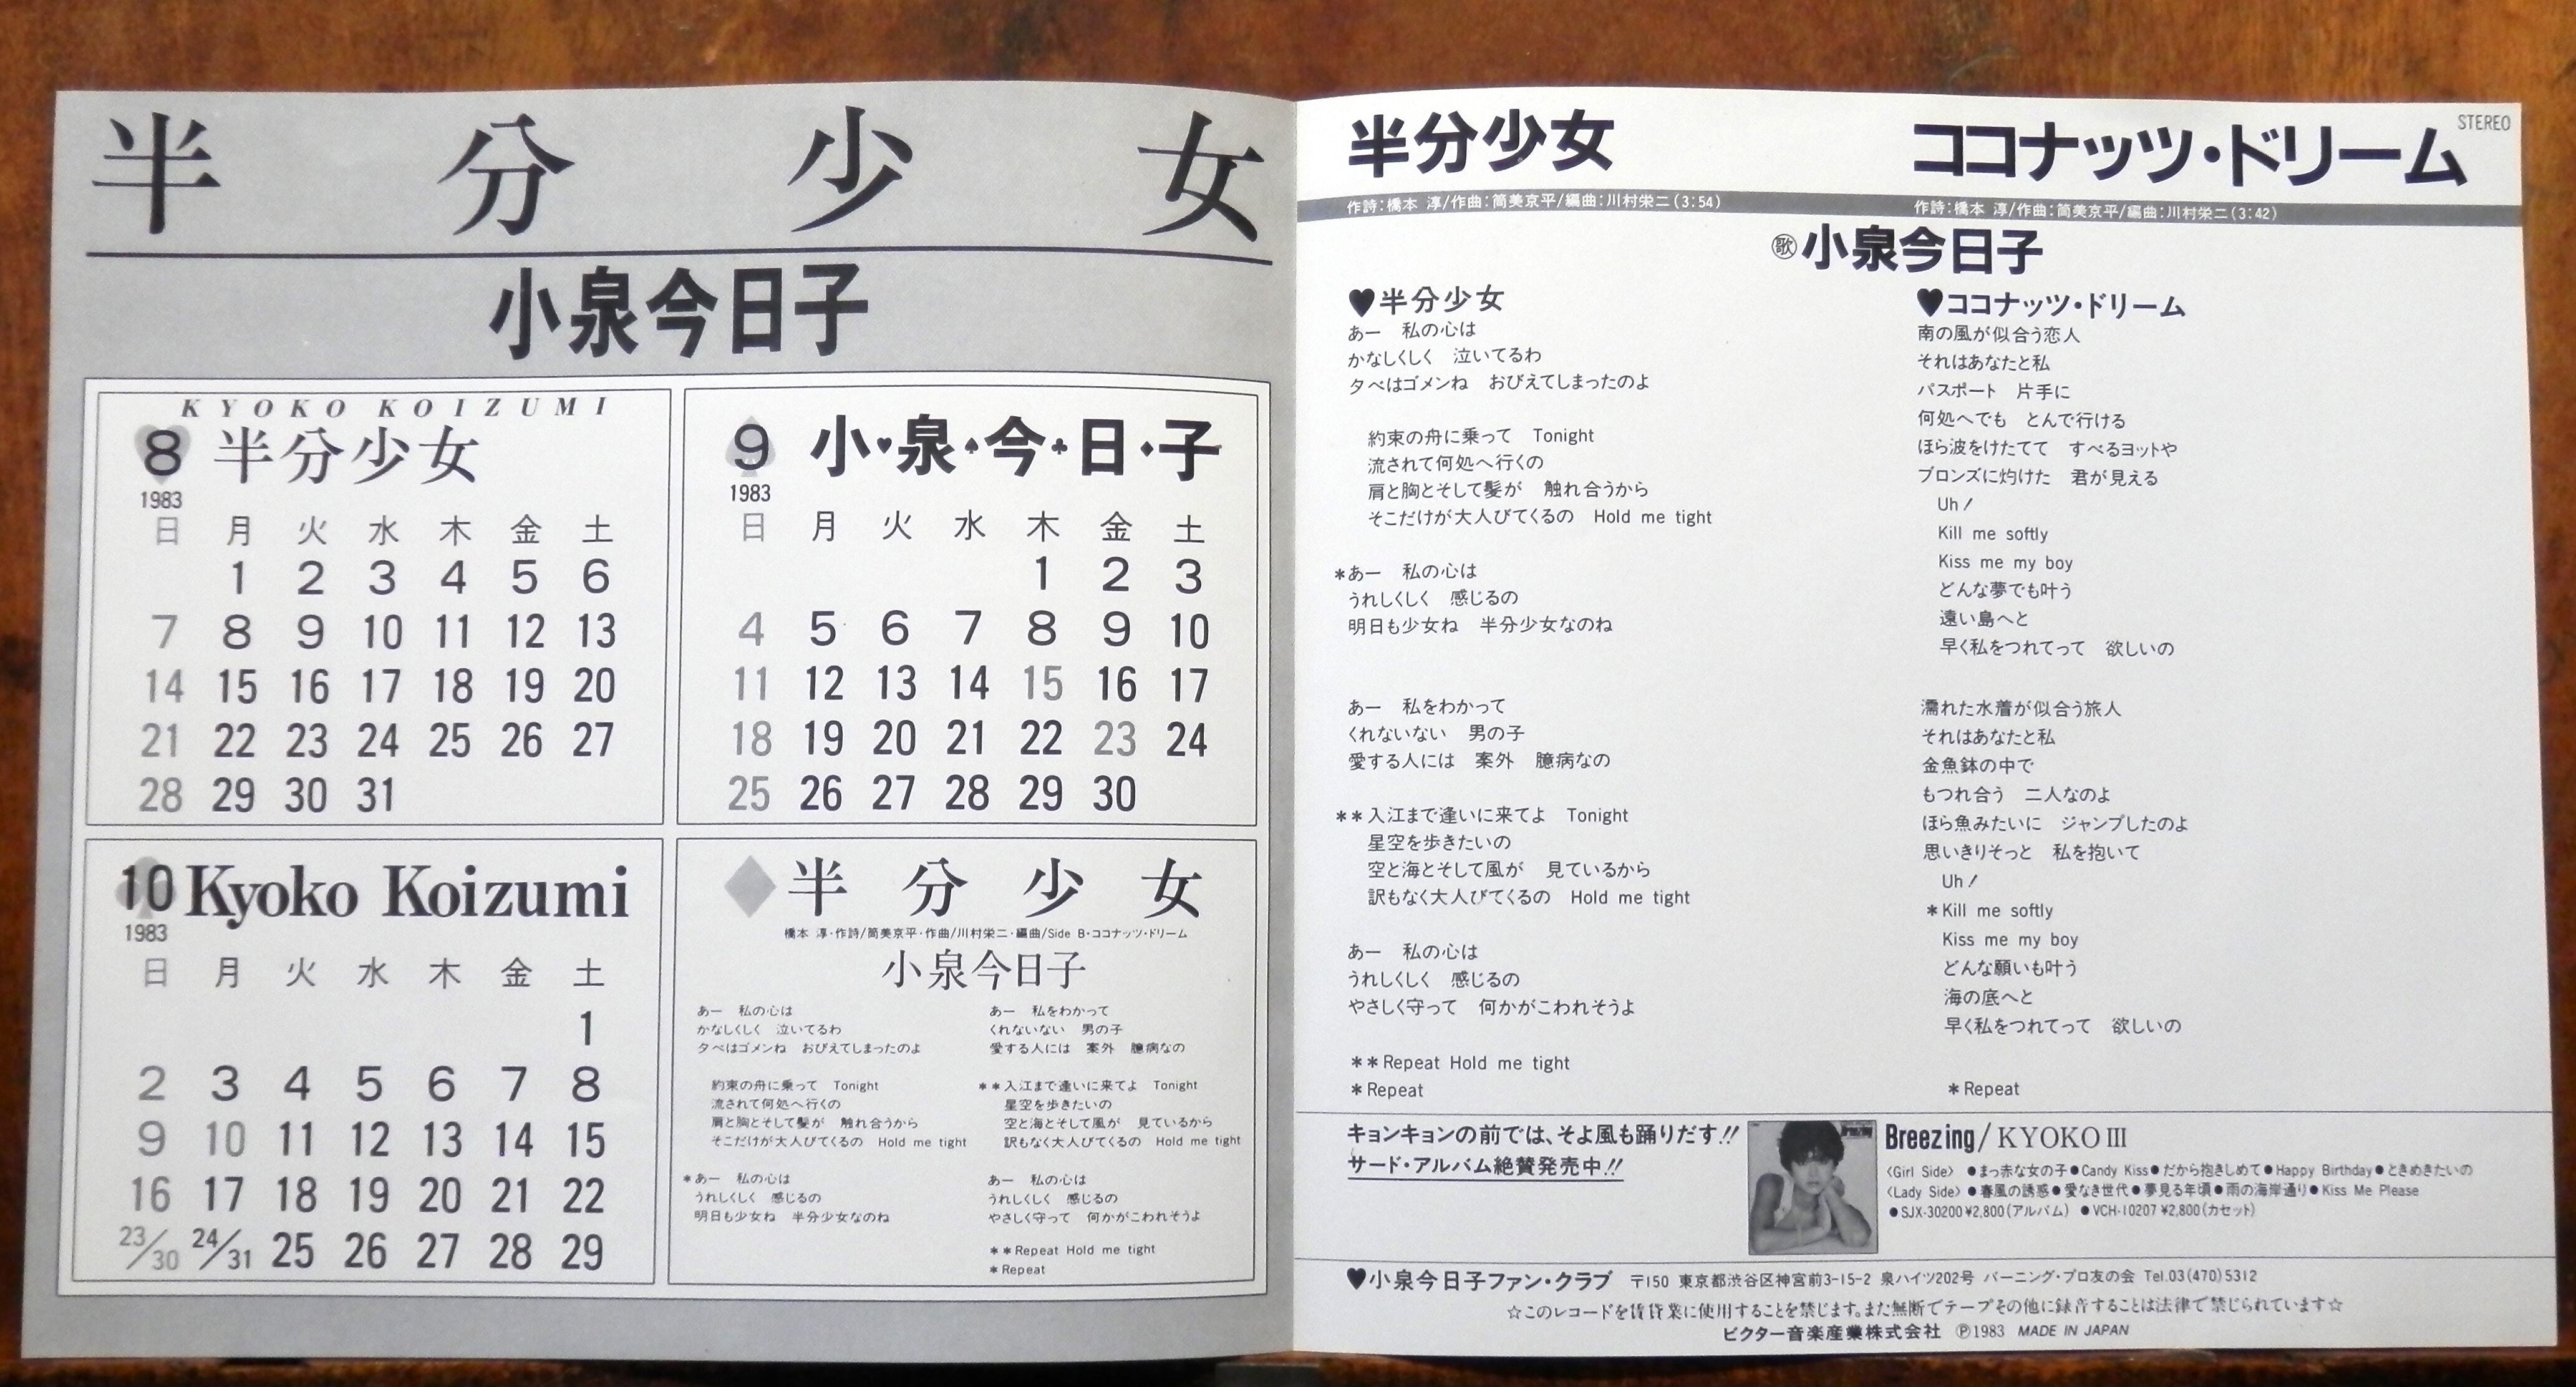 半分少女
小泉今日子
KYOKO KOIZUMI
8 半分少女
1983
日 月 火 水 木 金 土
1 2 3 4 5 6
7 8 9 10 11 12 13
14 15 16 17 18 19 20
21 22 23 24 25 26 27
28 29 30 31
9 小♥泉♠今♣日♦子
1983
日 月 火 水 木 金 土
1 2 3
4 5 6 7 8 9 10
11 12 13 14 15 16 17
18 19 20 21 22 23 24
25 26 27 28 29 30
10 Kyoko Koizumi
1983
日 月 火 水 木 金 土
1
2 3 4 5 6 7 8
9 10 11 12 13 14 15
16 17 18 19 20 21 22
23/30 24/31 25 26 27 28 29
半分少女
橋本 淳・作詩/筒美京平・作曲/川村栄二・編曲/Side B・ココナッツ・ドリーム
小泉今日子
あー 私の心は
かなしくしく 泣いてるわ
夕べはゴメンね おびえてしまったのよ
約束の舟に乗って Tonight
流されて何処へ行くの
肩と胸とそして髪が 触れ合うから
そこだけが大人びてくるの Hold me tight
*あー 私の心は
うれしくしく 感じるの
明日も少女ね 半分少女なのね
あー 私をわかって
くれないない 男の子
愛する人には 案外 臆病なの
**入江まで逢いに来てよ Tonight
星空を歩きたいの
空と海とそして風が 見ているから
訳もなく大人びてくるの Hold me tight
あー 私の心は
うれしくしく 感じるの
やさしく守って 何かがこわれそうよ
**Repeat Hold me tight
*Repeat
STEREO
半分少女
作詩:橋本 淳/作曲:筒美京平/編曲:川村栄二(3:54)
ココナッツ・ドリーム
作詩:橋本 淳/作曲:筒美京平/編曲:川村栄二(3:42)
㊙歌 小泉今日子
♥半分少女
あー 私の心は
かなしくしく 泣いてるわ
夕べはゴメンね おびえてしまったのよ
約束の舟に乗って Tonight
流されて何処へ行くの
肩と胸とそして髪が 触れ合うから
そこだけが大人びてくるの Hold me tight
*あー 私の心は
うれしくしく 感じるの
明日も少女ね 半分少女なのね
あー 私をわかって
くれないない 男の子
愛する人には 案外 臆病なの
**入江まで逢いに来てよ Tonight
星空を歩きたいの
空と海とそして風が 見ているから
訳もなく大人びてくるの Hold me tight
あー 私の心は
うれしくしく 感じるの
やさしく守って 何かがこわれそうよ
**Repeat Hold me tight
*Repeat
♥ココナッツ・ドリーム
南の風が似合う恋人
それはあなたと私
パスポート 片手に
何処へでも とんで行ける
ほら波をけたてて すべるヨットや
ブロンズに灼けた 君が見える
Uh!
Kill me softly
Kiss me my boy
どんな夢でも叶う
遠い島へと
早く私をつれてって 欲しいの
濡れた水着が似合う旅人
それはあなたと私
金魚鉢の中で
もつれ合う 二人なのよ
ほら魚みたいに ジャンプしたのよ
思いきりそっと 私を抱いて
Uh!
*Kill me softly
Kiss me my boy
どんな願いも叶う
海の底へと
早く私をつれてって 欲しいの
*Repeat
キョンキョンの前では、そよ風も踊りだす!!
サード・アルバム絶賛発売中!!
Breezing
Breezing/KYOKO III
〈Girl Side〉 ●まっ赤な女の子●Candy Kiss●だから抱きしめて●Happy Birthday●ときめきたいの
〈Lady Side〉●春風の誘惑●愛なき世代●夢見る年頃●雨の海岸通り●Kiss Me Please
●SJX-30200 ¥2,800(アルバム) ●VCH-10207 ¥2,800(カセット)
♥小泉今日子ファン・クラブ 〒150 東京都渋谷区神宮前3-15-2 泉ハイツ202号 バーニング・プロ友の会 Tel.03(470)5312
☆このレコードを賃貸業に使用することを禁じます。また無断でテープその他に録音することは法律で禁じられています☆
ビクター音楽産業株式会社 Ⓟ1983 MADE IN JAPAN